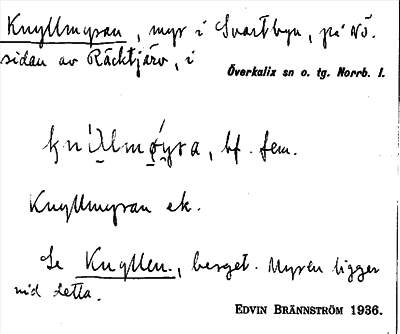 Knyllmyran, myr i Svartbyn, på nö.
sidan av Räcktjärv, i
Överkalix sn o. tg. Norrb. l.
bf. fem.
Knyllmyran ek.
Se Knyllen, berget. Myren ligger
vid detta.
EDVIN BRÄNNSTRÖM 1936.